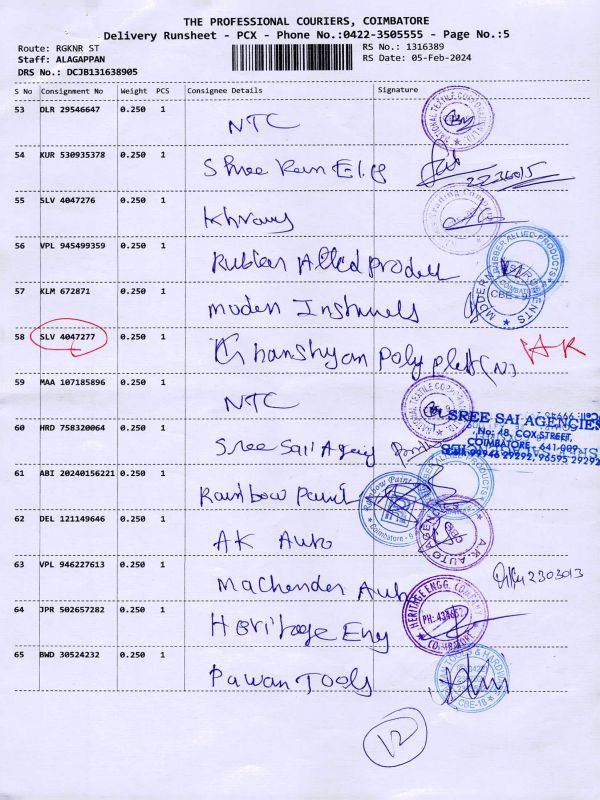 THE PROFESSIONAL COURIERS, COIMBATORE
Delivery Runsheet - PCX - Phone No.:0422-3505555 - Page No.:5
Route: RGKNR ST
RS No.: 1316389
Staff: ALAGAPPAN
RS Date: 05-Feb-2024
DRS No.: DCJB131638905
S No Consignment No Weight PCS Consignee Details Signature
53 DLR 29546647 0.250 1
NTC
54 KUR 530935378 0.250 1
Shree Ram
2236015
55 SLV 4047276 0.250 1
56 VPL 945499359 0.250 1
Rubber Allied
RUBBER ALLIED PRODUCTS
57 KLM 672871 0.250 1
Modern
MODERN
CBE - 9
58 SLV 4047277 0.250 1
Ghanshyam Poly (N)
AK
59 MAA 107185896 0.250 1
NTC
60 HRD 758320064 0.250 1
Sree Sai Agency
SREE SAI AGENCIES
No: 48, COX STREET,
COIMBATORE - 641-009.
61 ABI 20240156221 0.250 1
Rainbow Paint
Rainbow Paint
Coimbatore - 9
62 DEL 121149646 0.250 1
AK Auto
A.K. AUTO AGENCIES
63 VPL 946227613 0.250 1
Machender Auto
2303013
64 JPR 502657282 0.250 1
Heritage Eng
HERITAGE ENGG. COMPANY
COIMBATORE
65 BWD 30524232 0.250 1
Pawan Tools
CBE-18
12